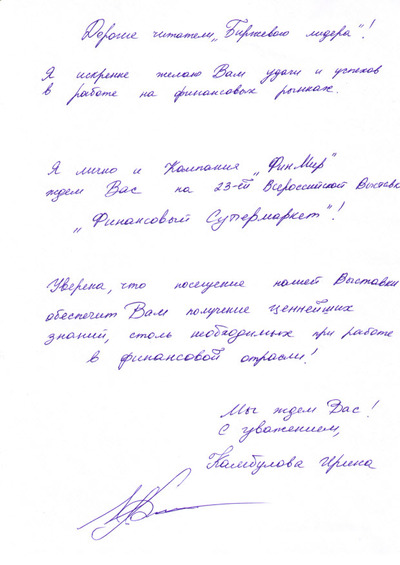 Дорогие читатели „Биржевого лидера"!
Я искренне желаю Вам удачи и успехов
в работе на финансовых рынках.
Я лично и Компания „ФинМир"
ждем Вас на 23-ей Всероссийской Выставке
„Финансовый Супермаркет"!
Уверена, что посещение нашей Выставки
обеспечит Вам получение ценнейших
знаний, столь необходимых при работе
в финансовой отрасли!
Мы ждем Вас!
С уважением,
Камбулова Ирина